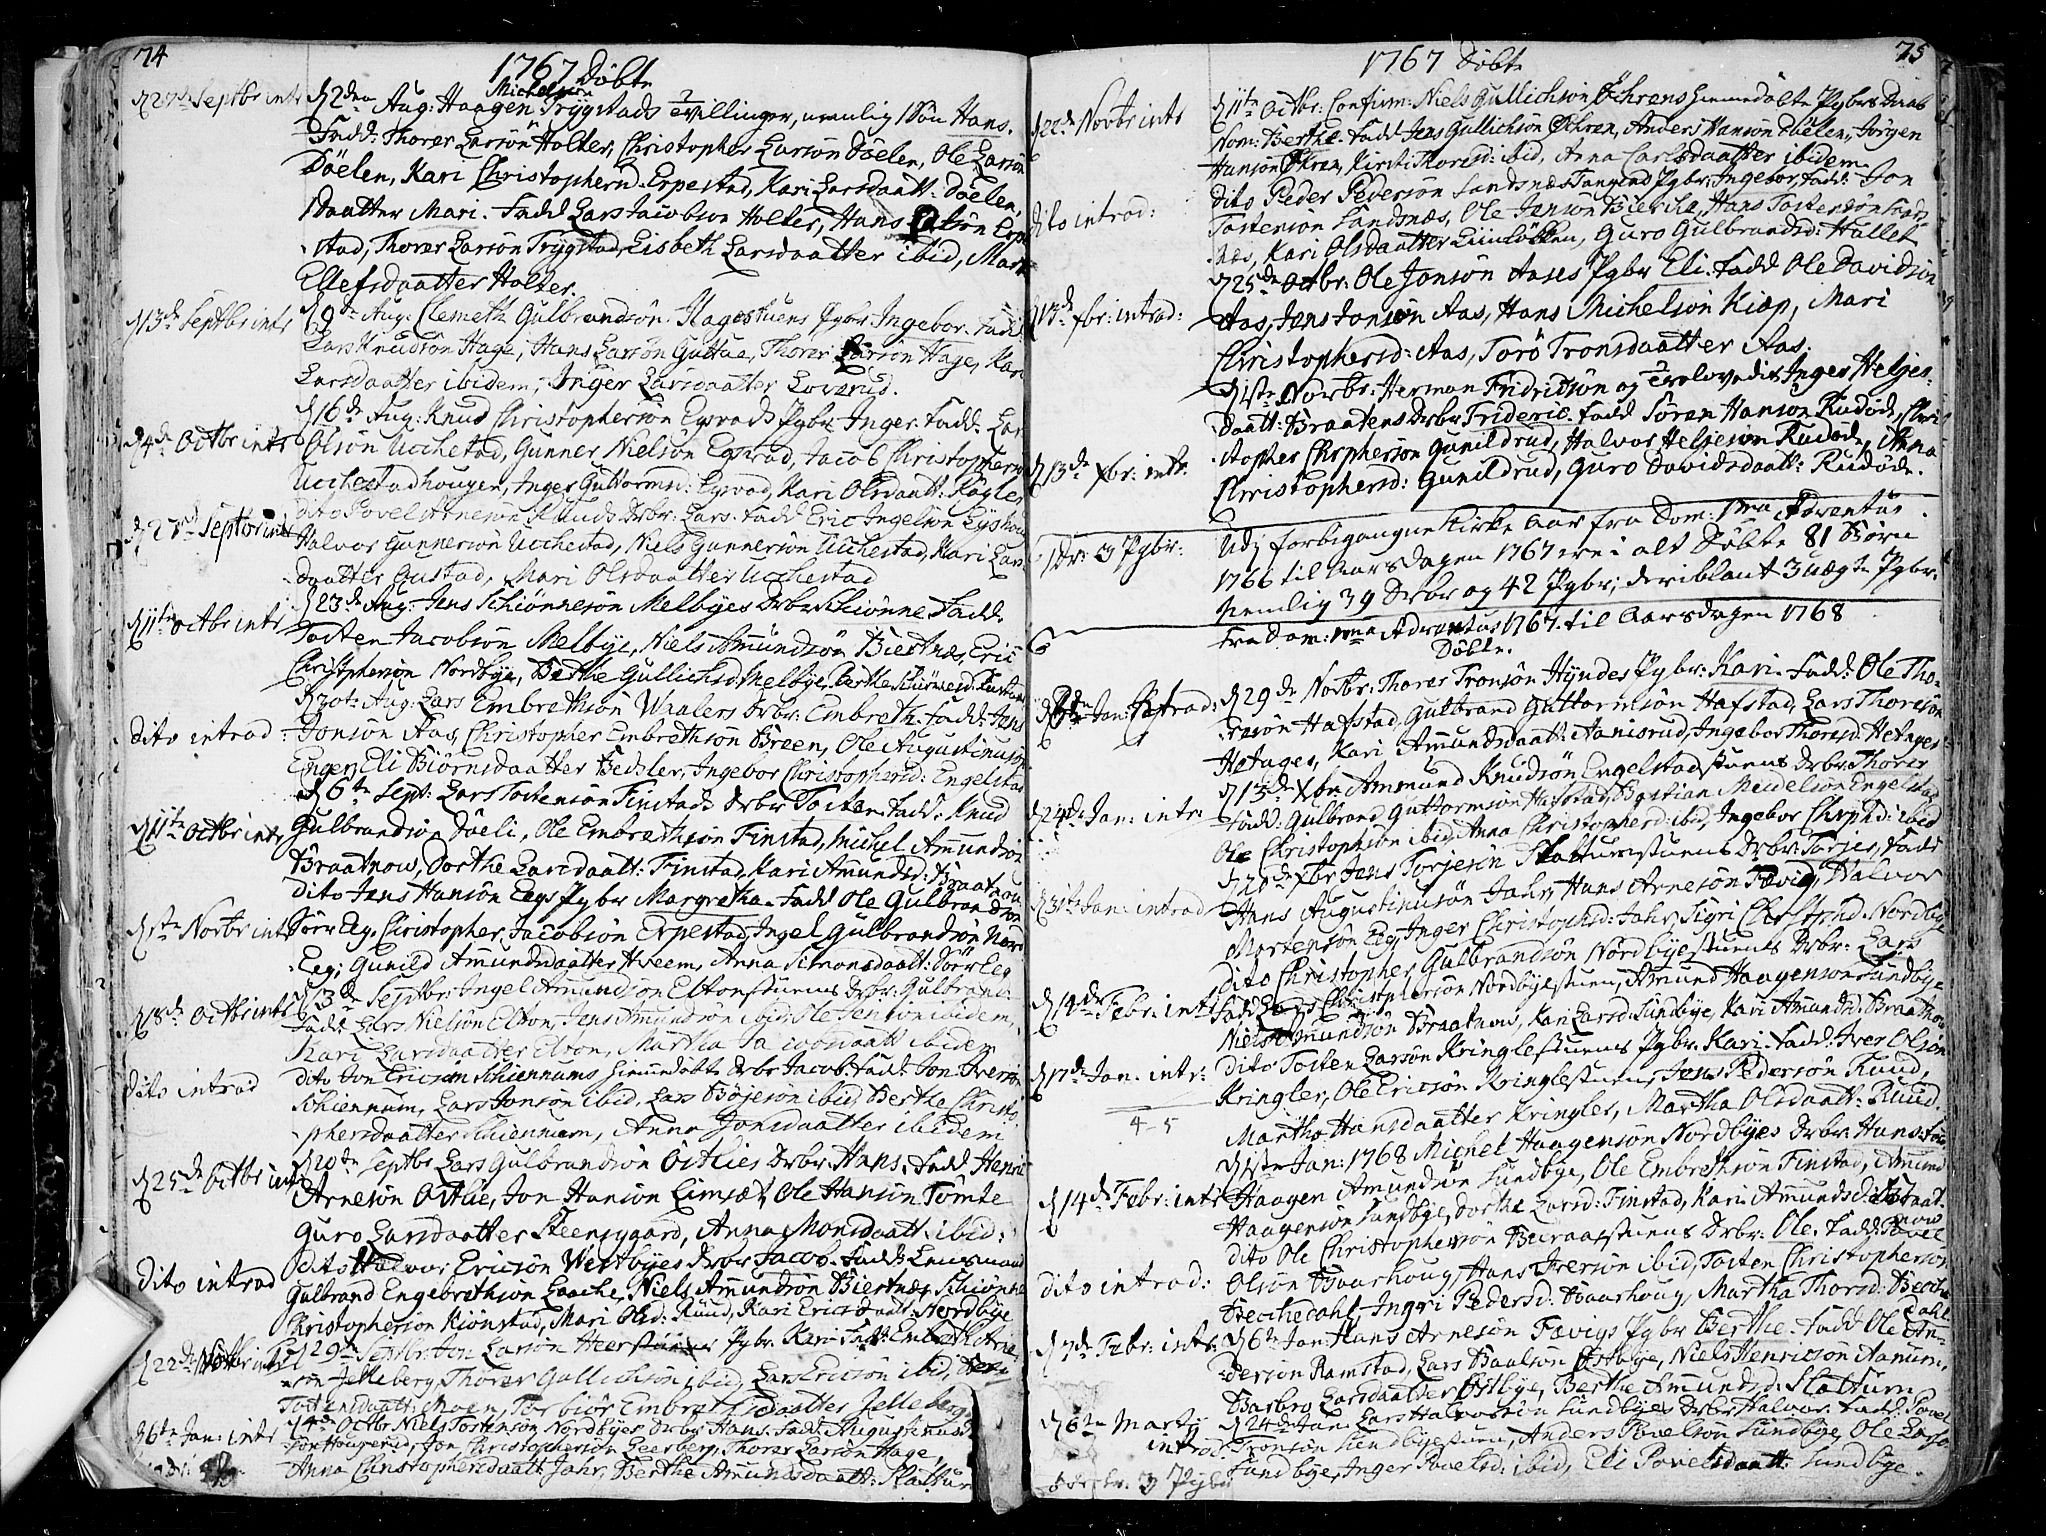 74
1767 Döbte
d 27de Septbr intr
d 2den Aug: Haagen Michelson Trygstads 2 tvillinger, nemlig 1 Sön Hans.
Fadd: Thorer Larsön Holter, Christopher Larsön Döelen, Ole Larsön
Döelen, Kari Christophersd. Erpestad, Kari Larsdaatt: Döelen,
1 Daatter Mari. Fadd Lars Jacobsön Holter, Hans Olsön Erpe
stad, Thorer Larsön Trygstad, Lisbeth Larsdaatter ibid, Mari
Ellefsdaatter Holter.
d 13de Septbr intr
d 9de Aug: Clemeth Gulbrandsön Hagestuens Pgbr Ingebor. Fadd
Lars Knudsön Hage, Hans Larsön Guttue, Thorer Larsön Hage, Kari
Larsdaatter ibidem, Inger Larsdaatter Loverud.
d 4de Octbr intr
d 16de Aug: Knud Christophersön Egsrads Pgbr Inger. Fadd. Lars
Olsön Ucchestad, Gunner Nielsön Egsrad, Jacob Christophersön
Ucchestadhougen, Inger Guttormsd: Egsrad, Kari Olsdaatt: Kogler
d 27de Septbr intr
dito Povel Arnesön Ruuds Drbr: Lars. Fadd Eric Ingelsön Lyshou
Halvor Gunnersön Ucchestad, Niels Gunnersön Ucchestad, Kari Lars
daatter Gustad, Mari Olsdaatter Ucchestad
d 11te Octbr intr
d 23de Aug: Jens Schiönnesön Melbyes Drbr Schiönne. Fadd:
Tosten Jacobsön Melbye, Niels Amundsön Biertnæs, Eric
Christophersön Nordbye, Berthe Gullichsd: Melbye, Berthe Schiönnesd:
dito introd:
d 30te Aug: Lars Embrethsön Whalers Drbr: Embreth. Fadd: Jens
Jonsön Aas, Christopher Embrethsön Breen, Ole Augustinusön
Enger, Eli Biörnsdaatter Bedsler, Ingebor Christophersd: Engelstad
d 11te Octbr intr
d 6te Sept: Lars Tostensön Finstads Drbr Tosten. Fadd: Knud
Gulbrandsön Döeli, Ole Embrethsön Finstad, Michel Amundsön
Braatnou, Dorthe Larsdaatt: Finstad, Kari Amundsd: Braatnou
d 1ste Novbr intr
dito Jens Hansön Eegs Pgbr Margretha. Fadd Ole Gulbrandsön
Sörr Eeg, Christopher Jacobsön Erpestad, Ingel Gulbrandsön Nord
Eeg, Gunild Amundsdaatter Hveem, Anna Simonsdaatt: Sörr Eeg
d 18de Octbr intr
d 13de Septbr: Ingel Amundsön Eltonstuens Drbr: Gulbrand.
Fadd Lars Nielsön Elton, Jens Amundsön ibid, Ole Jensön ibidem,
Kari Larsdaatter Elton, Martha Jacobsdaatt ibidem
dito introd
dito Jon Ericsön Schiennums hiemedöbte Drbr Jacob. Fadd: Jon Iversön
Schiennum, Lars Jonsön ibid, Lars Böjesön ibid, Berthe Christo
phersdaatter Schiennum, Anna Jonsdaatter ibidem
d 25de Octbr intr
d 20de Septbr Lars Gulbrandsön Ostlies Drbr: Hans. Fadd: Henric
Arnesön Ostlie, Jon Hansön Limsæt, Ole Hansön Tömte
Guro Larsdaatter Steensgaard, Anna Monsdaatt: ibid:
dito introd
dito Halvor Ericsön Westbyes Drbr Jacob. Fadd: Lensmand
Gulbrand Engebrethsön Laache, Niels Amundsön Biertnæs, Schiönne
Christophersön Kiönstad, Mari Olsd: Ruud, Kari Ericsdaatt: Nordbye
d 22de Novbr intr
d 29de Septbr: Jon Larsön Heerstuens Pgbr. Kari. Fadd: Embreth Arne
sön Jelleberg, Thorer Gullichsön ibid, Lars Ericsön ibid,
Tostensdaatt: Moen, Torbiör Embrethsdaatter Jelleberg
d 6te Jan: intr
d 4de Octbr Niels Tostensön Nordbyes Drbr Hans. Fadd: Augustinus
sön Hougerud, Jon Christophersön Leerberg, Thorer Larsön Hage,
Anna Christophersdaatt Jahr, Berthe Amundsdaatt: Slattum
75
1767 Döbt
d 22de Novbr intr
d 11te Octbr: Confirm: Niels Gullichsön Öhrens hiemedöbte Pgbrs Daab
Nom: Berthe. Fadd Jens Gullichsön Öhren, Anders Hansön Döelen, Jörgen
Hansön Öhren, Kirsti Thoresd: ibid, Anna Carlsdaatter ibidem
dito introd:
dito Peder Pedersön Sandsnæs Tangens Pgbr: Ingebor, Fadd: Jon
Tostensön Sandsnæs, Ole Jensön Bierche, Hans Tostensön Sands
næs, Kari Olsdaatter Liinlöbben, Guro Gulbrandsd: Hullet
d 13de xbr: introd:
d 25de Octbr: Ole Jonsön Aases Pgbr Eli. Fadd Ole Davidsön
Aas, Jens Jonsön Aas, Hans Michelsön Kiop, Mari
Christophersd: Aas, Torö Tronsdaatter Aas.
d 13de xbr: intr.
d 1ste Novbr: Herman Fridrichsön og Trolovede Inger Heljes
daatt: Braatens Drbr Frideric. Fadd Sören Hansön Rudöde, Chri
stopher Chrphersön Gunildrud, Halvor Heljesön Rudöde, Anna
Christophersd: Gunildrud, Guro Davidsdaatt: Rudöde.
1 Dr: 3 Pgbr:
Udj forbigangne Kirke Aar fra Dom: 1ma Adventus
1766 til Aarsdagen 1767 ere i alt Döbte 81 Börn
Nemlig 39 Drbr og 42 Pgbr; deriblant 3 uægte Pgbr.
Fra Dom: 1ma Adventus 1767 til Aarsdagen 1768
Döbte.
d 6te Jan: introd:
d 29de Novbr: Thorer Tronsön Hyndes Pgbr: Kari. Fadd: Ole Tho-
resön Hafstad, Gulbrand Guttormsön Hafstad, Lars Thoresön
Hetager, Kari Amundsdaatt: Aanisrud, Ingebor Thoresd: Hetager
d 24de Jan: intr:
d 13de Xbr: Ammund Knudsön Engelstadstuens Drbr: Thorer
Fadd: Gulbrand Guttormsön Hafstad, Bastian Meidelsön Engelstad
Ole Christophsön ibid, Anna Christophersd: ibid, Ingebor Chrphd: ibid
d 31te Jan: introd
d 20de Xbr Jens Torjersön Slattumstuens Drbr: Torjer, Fadd
Hans Augustinusön Jahr, Hans Arnesön Fævig, Halvor
Mortensön Eeg, Inger Christophsd: Jahr, Sigri Christophsd: Nordbye
d 14de Febr: intr
dito Christopher Gulbrandsön Nordbyestuens Drbr: Lars
Fadd Lars Christophersön Nordbyestuen, Amund Haagensön Sundbye
Niels Amundsön Braatnou, Kari Larsd: Sundbye, Kari Amundsd. Braatnou
d 17de Jan: intr:
dito Tosten Larsön Kringlestuens Pgbr: Kari. Fadd. Iver Olsön
Kringler, Ole Ericsön Kringlestuen, Jens Pedersön Ruud,
4 5
Martha Hansdaatter Kringler, Martha Olsdaatt: Ruud.
d 14de Febr: intr
d 1ste Jan: 1768 Michel Haagensön Nordbyes Drbr: Hans: Fadd
Haagen Amundsön Sundbye, Ole Embrethsön Finstad, Amund
Haagensön Sundbye, Dorthe Larsd: Finstad, Kari Amundsd: Braat-
nou
dito introd:
dito Ole Christophersön Buraasstuens Drbr: Ole. Fadd: Povel
Olsön Baarhoug, Hans Iversön ibid, Tosten Christophersön
Becchedahl, Ingri Pedersd: Baarhoug, Martha Thorsd: Becche
dahl.
d 7de Febr: intr:
d 6te Jan: Hans Arnesön Fævigs Pgbr Berthe. Fadd Ole An-
dersön Ramstad, Lars Paalsön Östbye, Niels Henricsön Aanum,
Barbro Larsdaatter Östbye, Berthe Amundsd: Slattum
d 6te Martij
introd
d 24de Jan: Lars Halvorsön Sundbyes Drbr Halvor. Fadd: Povel
Tronsön Sundbyestuen, Anders Povelsön Sundbye, Ole Larsön
Sundbye, Inger Povelsd: ibid, Eli Povelsdaatt: Sundbye.